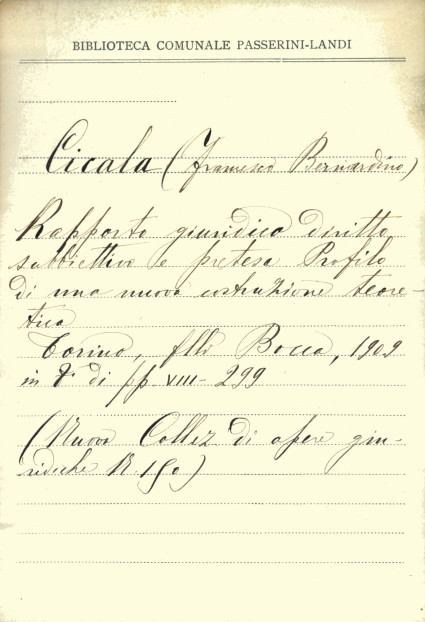 BIBLIOTECA COMUNALE PASSERINI-LANDI
Cicala (Francesco Bernardino)
Rapporto giuridico diritto
subbiettivo e pretesa Profilo
di una nuova costruzione teore-
tica
Torino, flli Bocca, 1909
in 8° di pp VIII-299
(Nuova Collez di opere giu-
ridiche N 150)